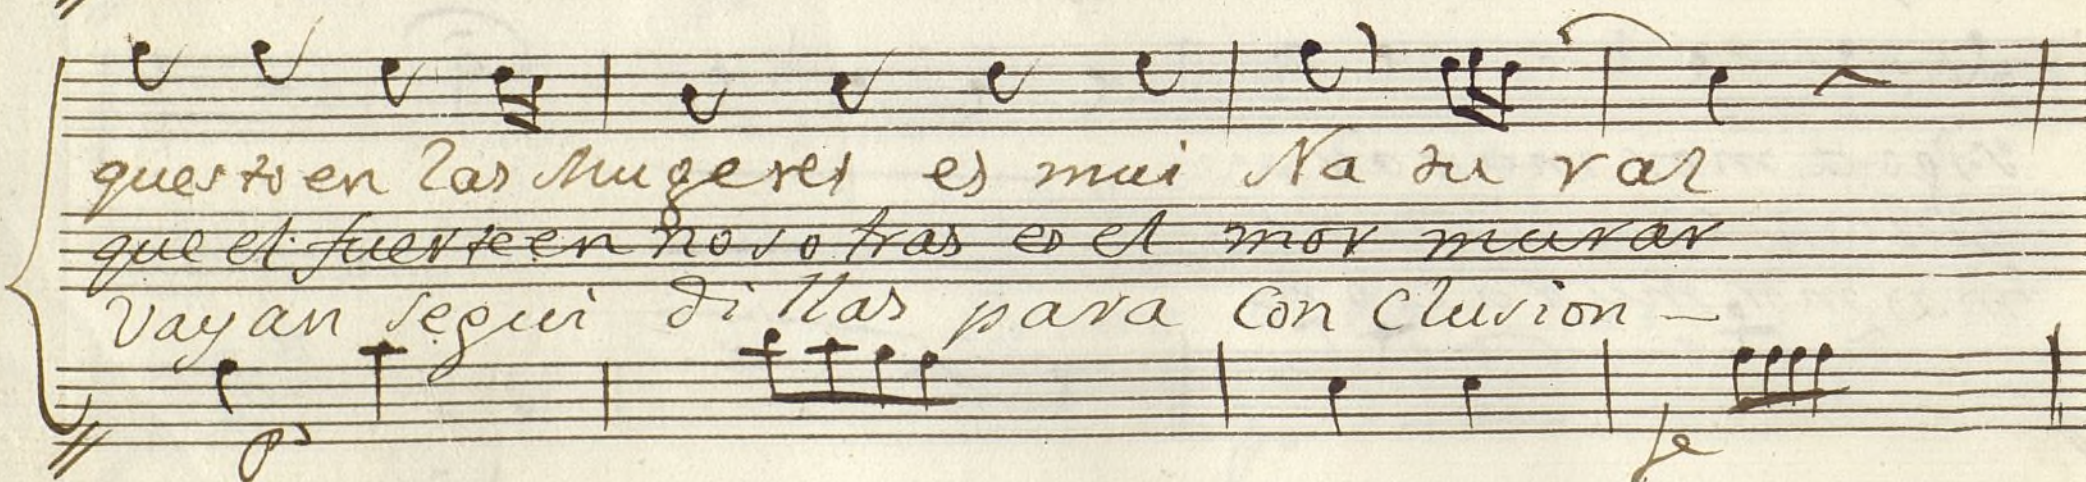 questo en las Mugeres es mui Na tu ral
que el fuerte en no so tras es el mor murar
Vayan segui di llas para Con clusion —
P
fe